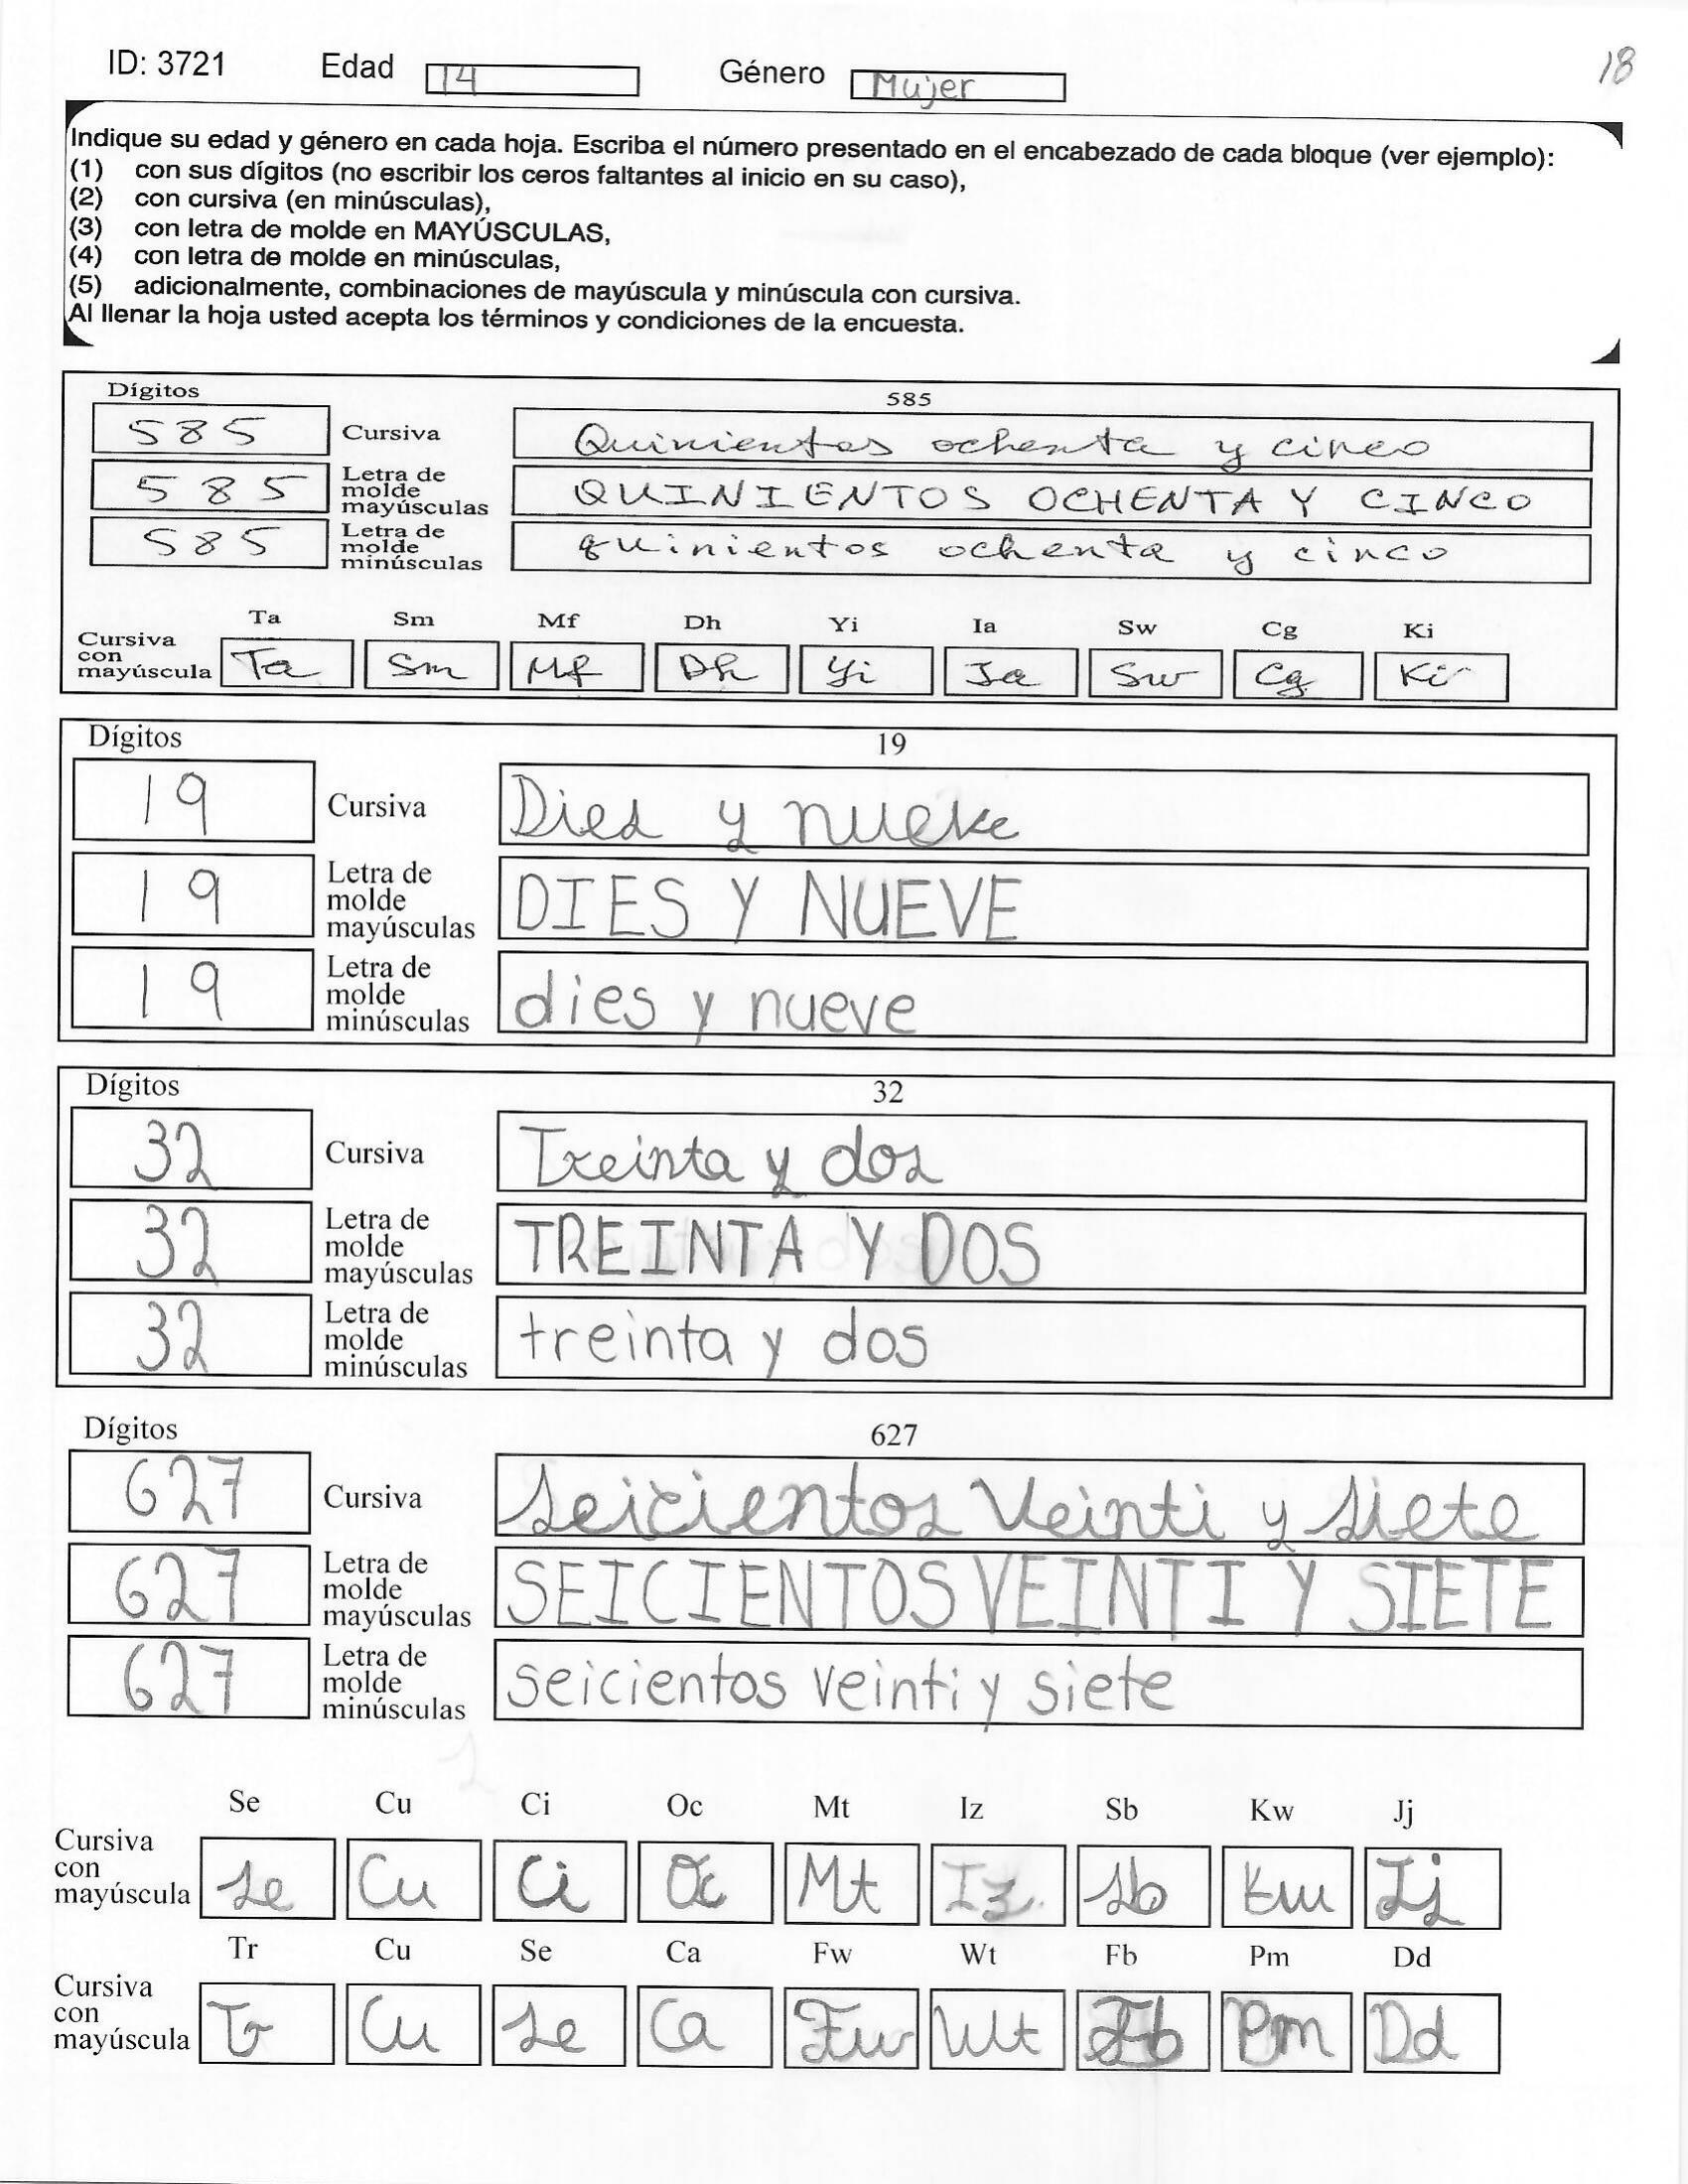 ID: 3721 Edad 14 Género Mujer 18
Indique su edad y género en cada hoja. Escriba el número presentado en el encabezado de cada bloque (ver ejemplo):
(1) con sus dígitos (no escribir los ceros faltantes al inicio en su caso),
(2) con cursiva (en minúsculas),
(3) con letra de molde en MAYÚSCULAS,
(4) con letra de molde en minúsculas,
(5) adicionalmente, combinaciones de mayúscula y minúscula con cursiva.
Al llenar la hoja usted acepta los términos y condiciones de la encuesta.
Dígitos 585
585 Cursiva Quinientos ochenta y cinco
585 Letra de molde mayúsculas QUINIENTOS OCHENTA Y CINCO
585 Letra de molde minúsculas quinientos ochenta y cinco
Ta Sm Mf Dh Yi Ia Sw Cg Ki
Cursiva con mayúscula Ta Sm Mf Dh Yi Ia Sw Cg Ki
Dígitos 19
19 Cursiva Dies y nueve
19 Letra de molde mayúsculas DIES Y NUEVE
19 Letra de molde minúsculas dies y nueve
Dígitos 32
32 Cursiva Treinta y dos
32 Letra de molde mayúsculas TREINTA Y DOS
32 Letra de molde minúsculas treinta y dos
Dígitos 627
627 Cursiva seicientos Veinti y siete
627 Letra de molde mayúsculas SEICIENTOS VEINTI Y SIETE
627 Letra de molde minúsculas seicientos veinti y siete
Se Cu Ci Oc Mt Iz Sb Kw Jj
Cursiva con mayúscula Se Cu Ci Oc Mt Iz Sb Kw Jj
Tr Cu Se Ca Fw Wt Fb Pm Dd
Cursiva con mayúscula Tr Cu Se Ca Fw Wt Fb Pm Dd